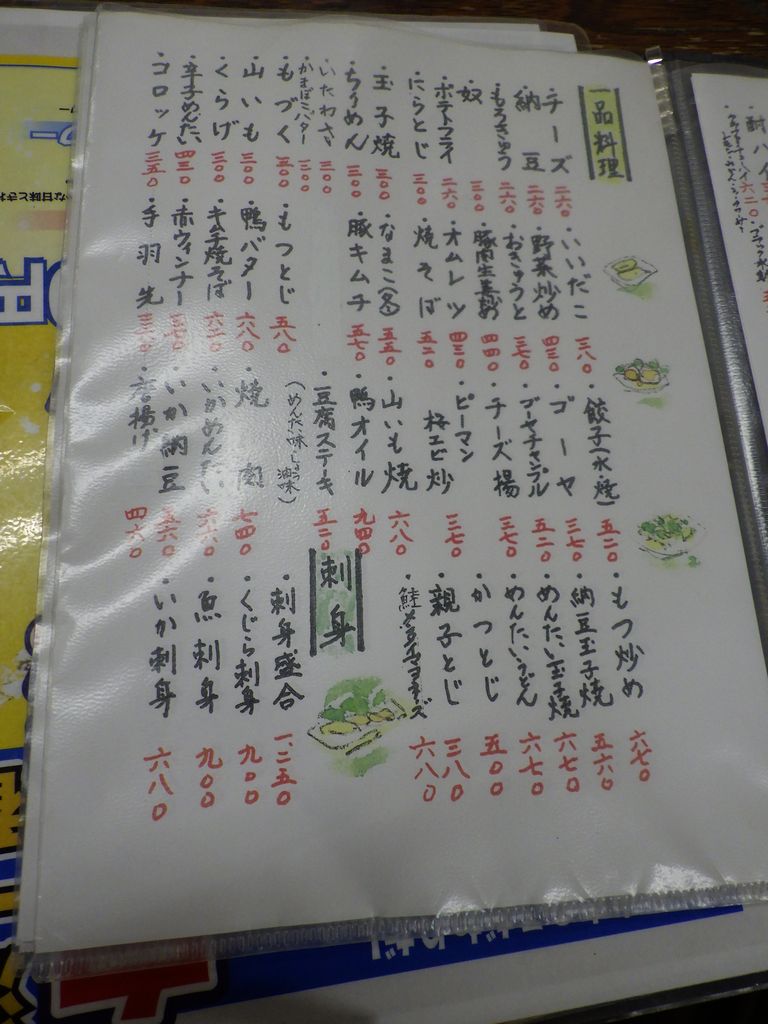 一品料理
・チーズ 二六〇
・納豆 二六〇
・もろきゅう 二六〇
・奴 三〇〇
・ポテトフライ 二六〇
・にらとじ 三〇〇
・玉子焼 三〇〇
・ちりめん 三〇〇
・いたわさ 三〇〇
・かまぼこバター 三〇〇
・もづく 三〇〇
・山いも 三〇〇
・くらげ 三〇〇
・辛子めんたい 四三〇
・コロッケ 三五〇
・いいだこ 三八〇
・野菜炒め 四三〇
・おきゅうと 三七〇
・豚肉生姜炒め 四四〇
・オムレツ 四三〇
・焼そば 五二〇
・なまこ(冬) 五五〇
・豚キムチ 五七〇
・もつとじ 五八〇
・鴨バター 六八〇
・キムチ焼そば 六二〇
・赤ウィンナー
・手羽先
・餃子(水・焼) 五二〇
・ゴーヤ 三七〇
・ゴーヤチャンプル 五二〇
・チーズ揚 三七〇
・ピーマン
桜エビ炒 三七〇
・山いも焼 六八〇
・鴨オイル 九四〇
・豆腐ステキ 五二〇
(めんたい味・しょう油味)
・焼肉 七四〇
・いかめんたい 六六〇
・いか納豆 五六〇
・唐揚げ 四六〇
・もつ炒め 六七〇
・納豆玉子焼 五六〇
・めんたい玉子焼 六七〇
・めんたいうどん 六七〇
・かつとじ 五〇〇
・親子とじ 三八〇
六八〇
刺身
・刺身盛合 一、二五〇
・くじら刺身 九〇〇
・魚刺身 九〇〇
・いか刺身 六八〇